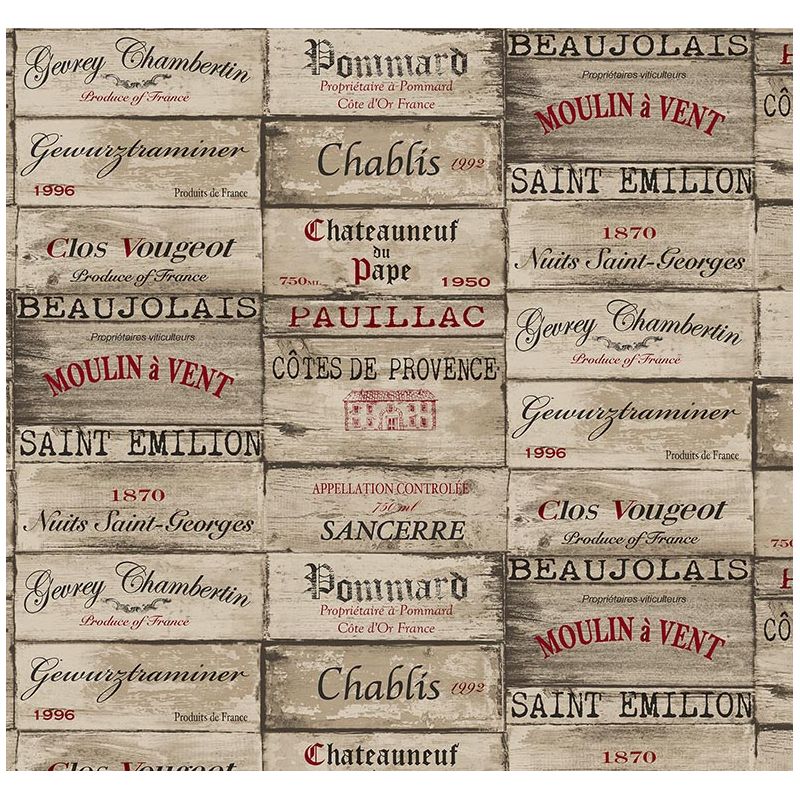 Gevrey Chambertin
Produce of France
Gewurztraminer
1996 Produits de France
Clos Vougeot
Produce of France
BEAUJOLAIS
Propriétaires viticulteurs
MOULIN à VENT
SAINT EMILION
1870
Nuits Saint-Georges
Gevrey Chambertin
Produce of France
Gewurztraminer
1996 Produits de France
Clos Vougeot
Pommard
Propriétaire à Pommard
Côte d'Or France
Chablis 1992
Chateauneuf
du
Pape
750ML 1950
PAUILLAC
CÔTES DE PROVENCE
APPELLATION CONTROLÉE
750 ml
SANCERRE
Pommard
Propriétaire à Pommard
Côte d'Or France
Chablis 1992
Chateauneuf
BEAUJOLAIS
Propriétaires viticulteurs
MOULIN à VENT
SAINT EMILION
1870
Nuits Saint-Georges
Gevrey Chambertin
Produce of France
Gewurztraminer
1996 Produits de France
Clos Vougeot
Produce of France
BEAUJOLAIS
Propriétaires viticulteurs
MOULIN à VENT
SAINT EMILION
1870
CÔ
750
CÔ